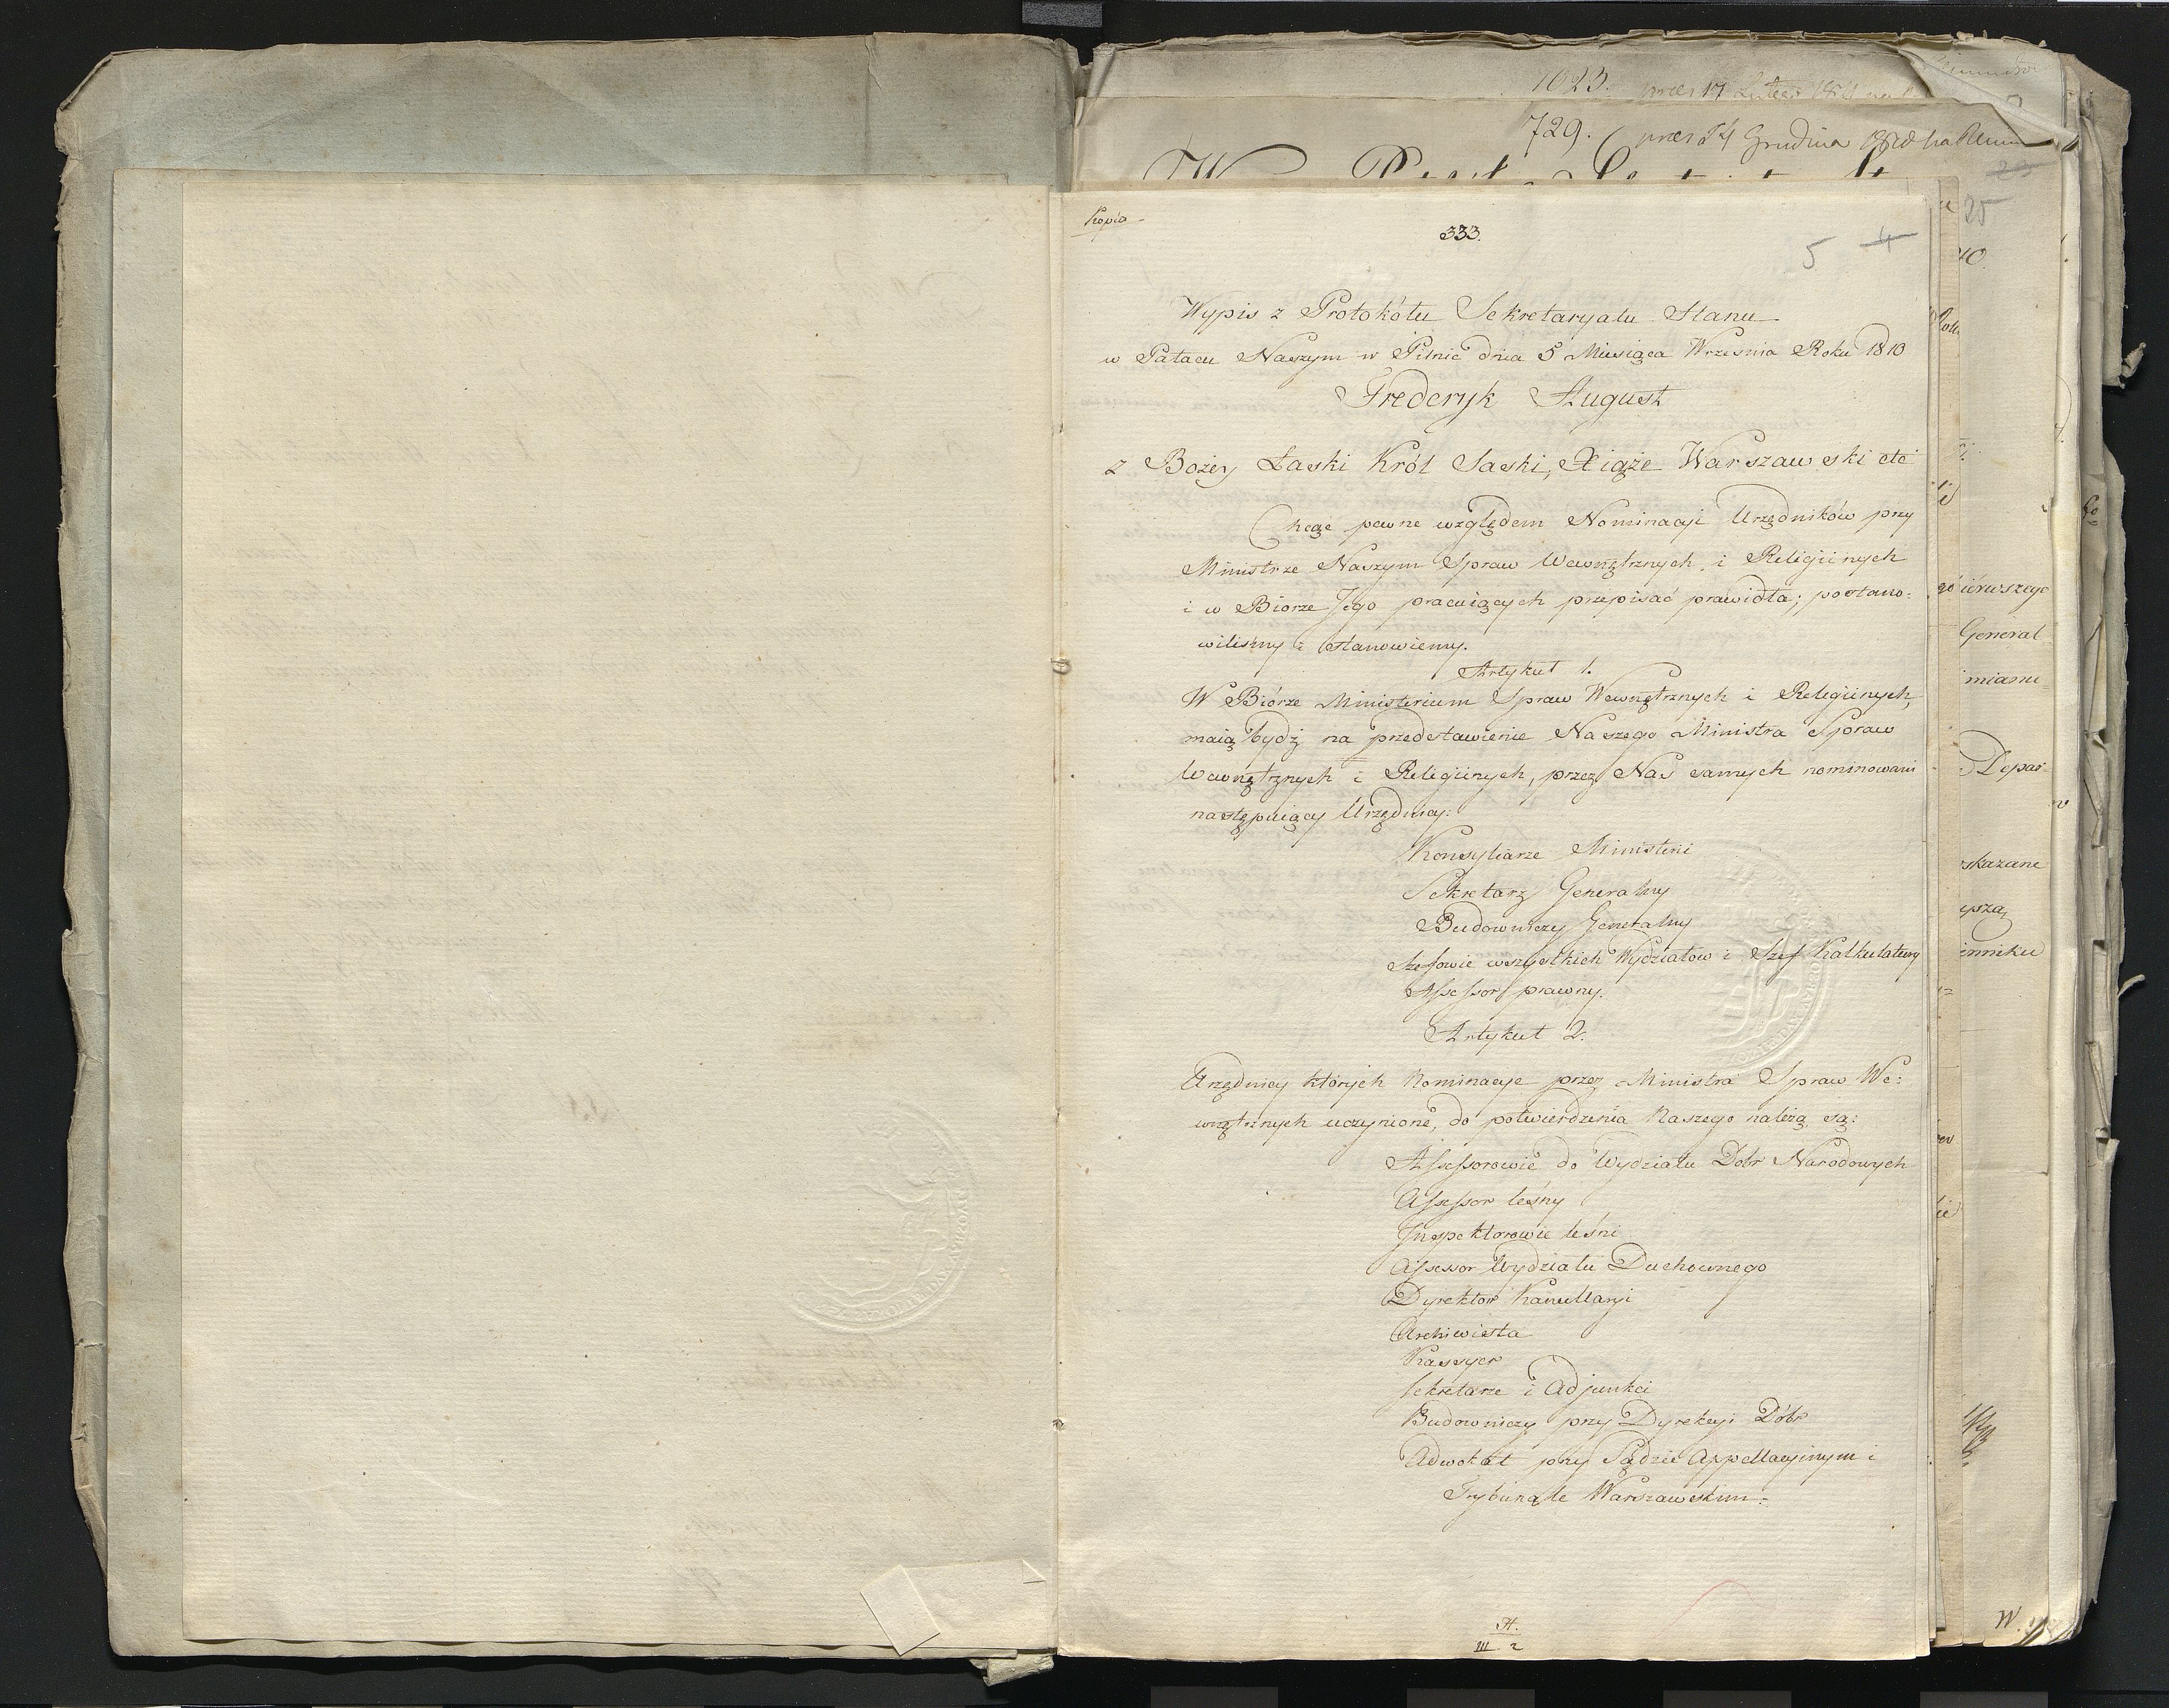 1023.
729. Grudnia
23
25
Kopia
333.
5 4
Wypis z Protokółu Sekretaryatu Stanu
w Pałacu Naszym w Pilnic dnia 5 Miesiąca Września Roku 1810
Frederyk August
z Bożey Łaski Król Saski, Xiąże Warszawski etc
Chcąc pewne względem Nominacyi Urzędników przy
Ministrze Naszym Spraw Wewnętrznych i Religiinych
i w Biorze Jego pracuiących przepisać prawidła; postano:
wiliśmy i stanowiemy.
Artykuł 1.
W Biórze Ministerium Spraw Wewnętrznych i Religiinych,
maią bydź na przedstawienie Naszego Ministra Spraw
Wewnętrznych i Religiinych, przez Nas samych nominowani
następuiący Urzędnicy:
Konsyliarze Ministerii
Sekretarz Generalny
Budowniczy Generalny
Szefowie wszystkich Wydziałów i Szef Kalkulatury
Assessor prawny.
Artykuł 2.
Urzędnicy których Nominacye przez Ministra Spraw We:
wnętrznych uczynione, do potwierdzenia Naszego należą, są:
Assessorowie do Wydziału Dobr Narodowych
Assessor leśny
Inspektorowie leśni
Assessor Wydziału Duchownego
Dyrektor Kancellaryi
Archiwista
Kassyer
Sekretarze i Adjunkci
Budowniczy przy Dyrekcyi Dóbr
Adwokat przy Sądzie Appellacyinym i
Trybunale Warszawskim:
H.
III 2
General
mianu=
Depar=
skazane
W.